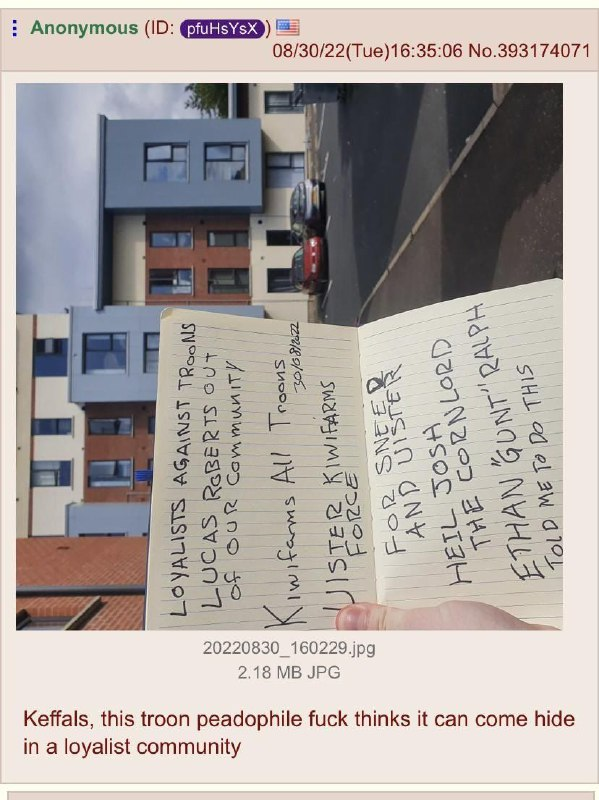 Anonymous (ID: pfuHsYsX)
08/30/22(Tue)16:35:06 No.393174071
LOYALISTS AGAINST TROONS
LUCAS ROBERTS OUT
OF OUR COMMUNITY
Kiwifarms All Troons
30/08/2022
ULSTER KIWIFARMS
FORCE
FOR SNEED
AND ULSTER
HEIL JOSH
THE CORNLORD
ETHAN "GUNT" RALPH
TOLD ME TO DO THIS
20220830_160229.jpg
2.18 MB JPG
Keffals, this troon peadophile fuck thinks it can come hide
in a loyalist community